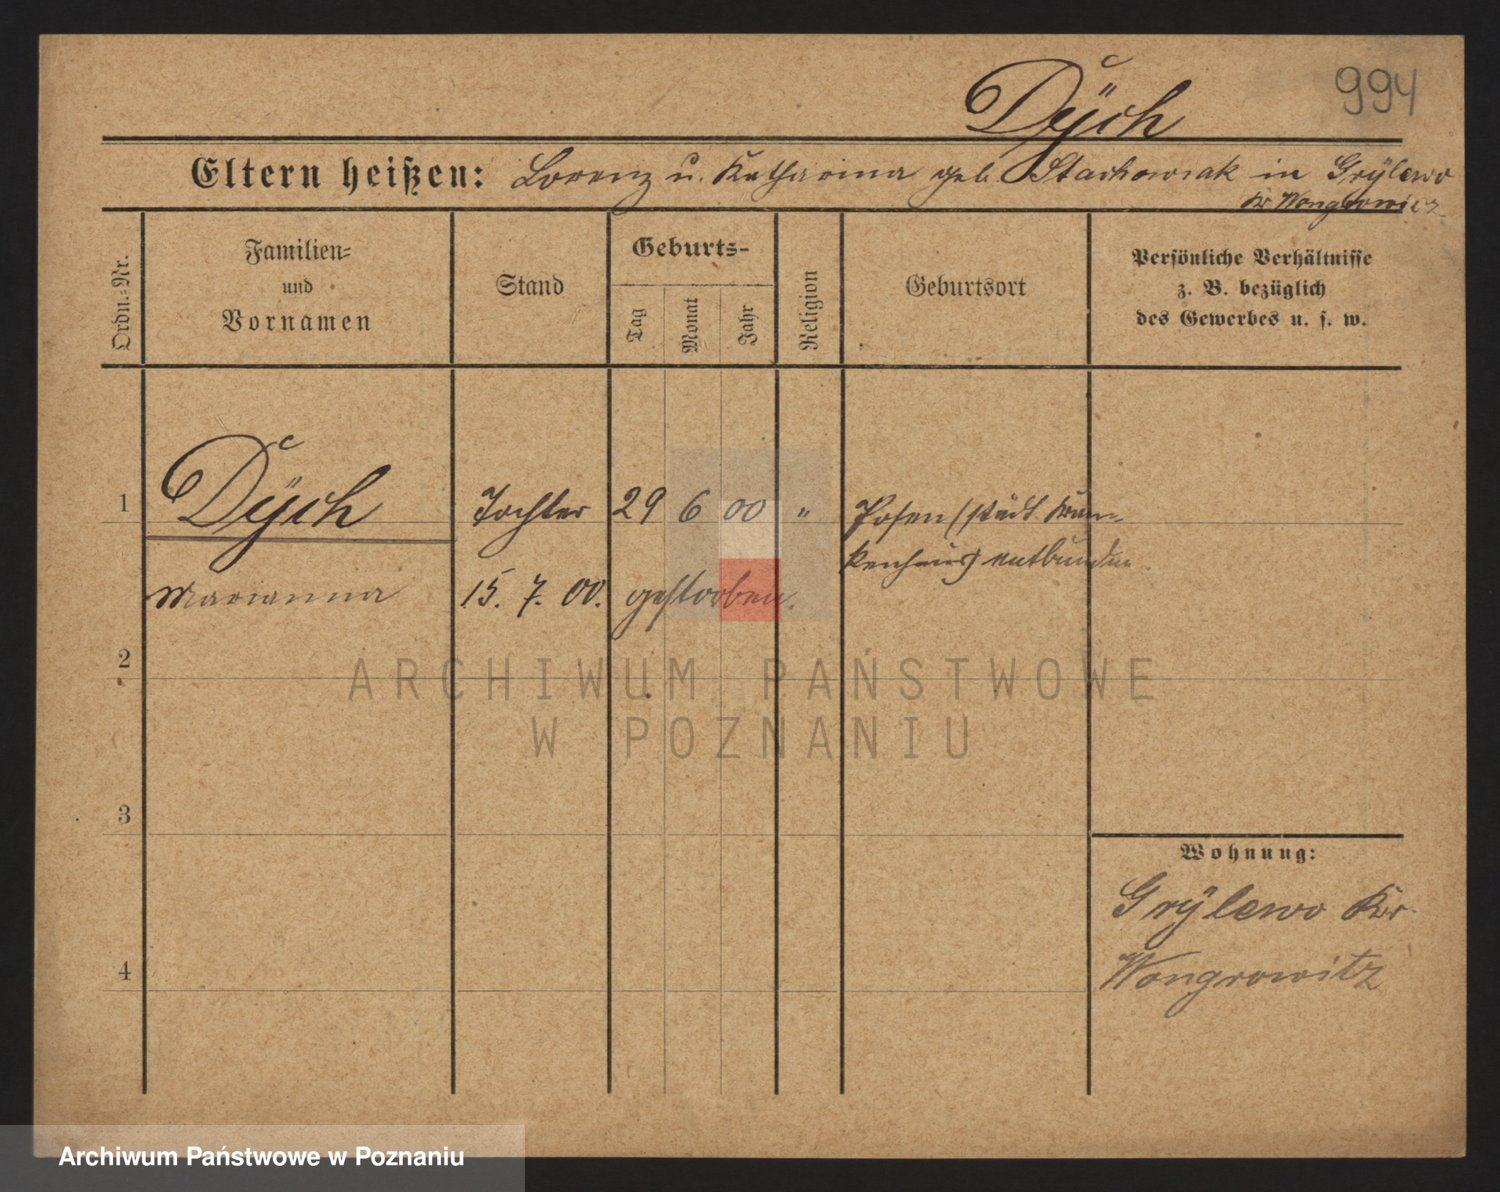 Dÿch 994
Eltern heißen: Lorenz u. Katharina geb. Stachowiak in Grÿlewo
Kr Wongrowitz
Ordn.-Nr.
Familien-
und
Vornamen
Stand
Geburts-
Tag
Monat
Jahr
Religion
Geburtsort
Persönliche Verhältnisse
z. B. bezüglich
des Gewerbes u. s. w.
1 Dÿch Tochter 29 6 00 " Posen (städt. Kran-
kenhaus) entbunden
Marianna 15. 7. 00. gestorben.
2
ARCHIWUM PAŃSTWOWE
W POZNANIU
3
Wohnung:
Grÿlewo Kr.
4 Wongrowitz
Archiwum Państwowe w Poznaniu